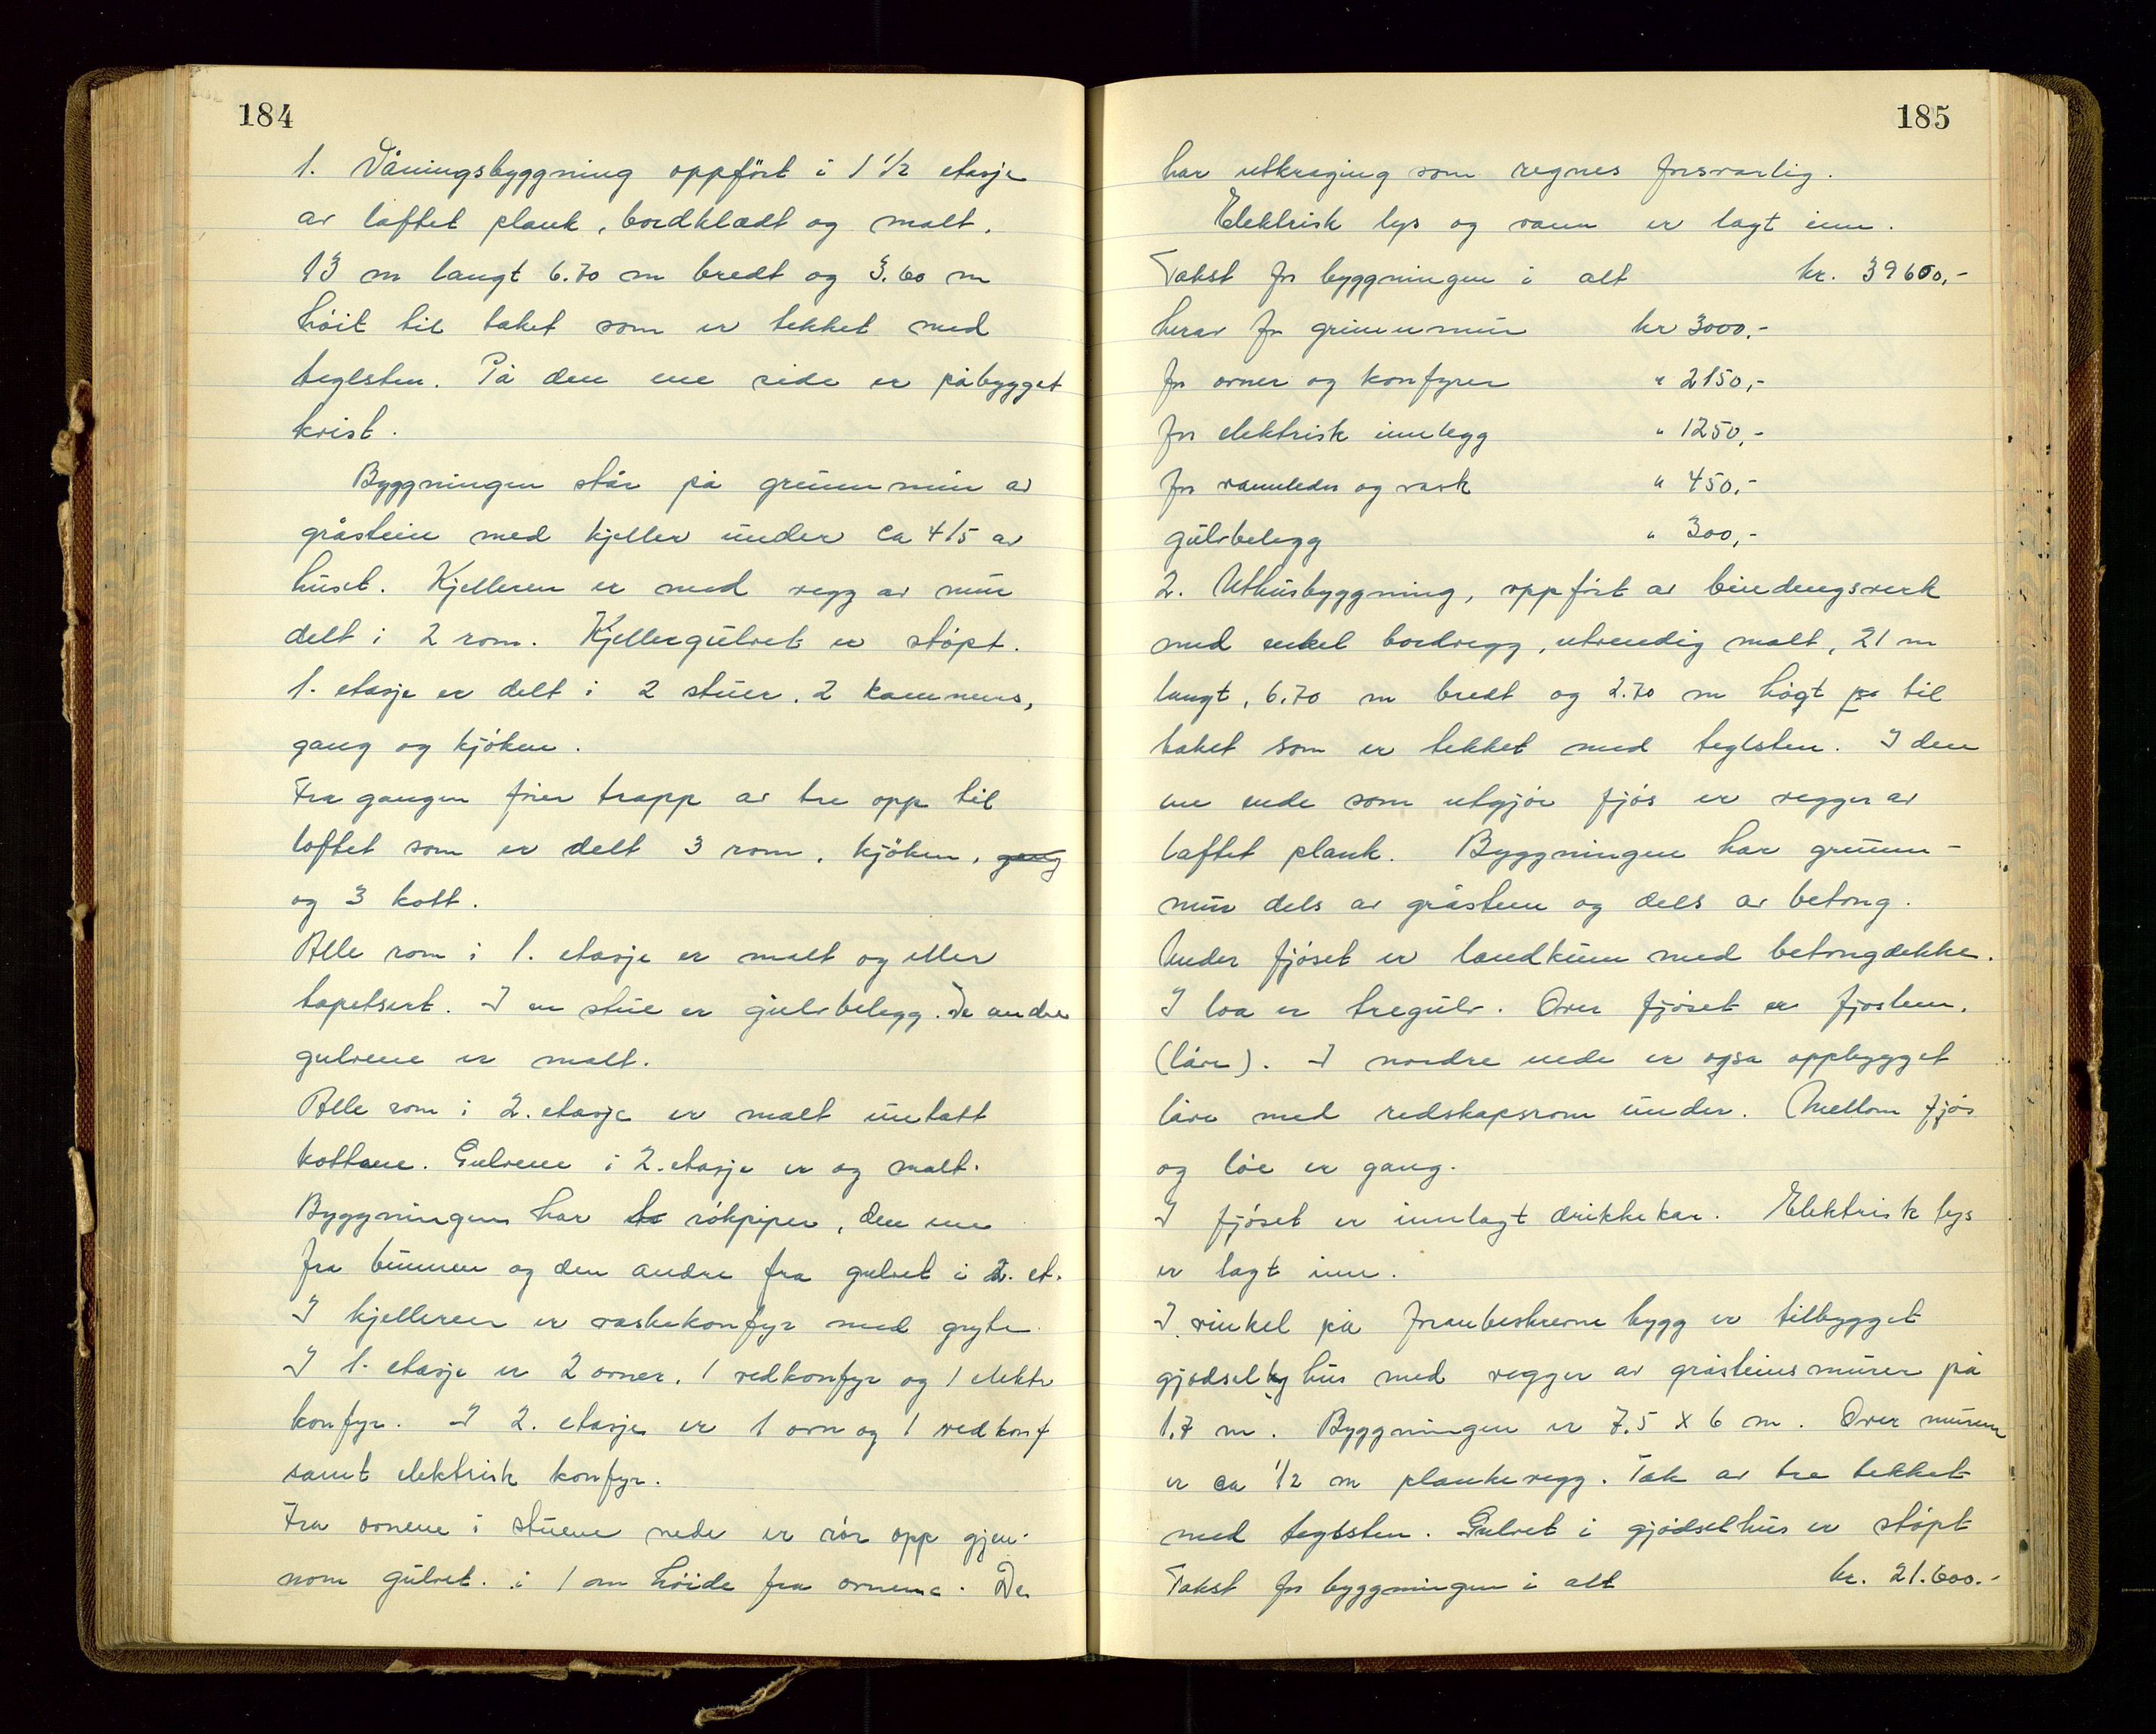 184
1. Våningsbyggning oppført i 1 1/2 etasje
av laftet plank, bordklædt og malt.
13 m langt 6.70 m bredt og 3.60 m
höit til taket som er tekket med
teglsten. På den ene side er påbygget
krist.
Byggningen står på grunnmur av
gråstein med kjeller under ca 4/5 av
huset. Kjelleren er med vegg av mur
delt i 2 rom. Kjellergulvet er støpt.
1. etasje er delt i 2 stuer, 2 kammers,
gang og kjøken.
Fra gangen fører trapp av tre opp til
loftet som er delt 3 rom, kjöken, gang
og 3 kott.
Alle rom i 1. etasje er malt og eller
tapetsert. I en stue er gulvbelegg. De andre
gulvene er malt.
Alle rom i 2. etasje er malt untatt
kottene. Gulvene i 2. etasje er og malt.
Byggningen har to rökpiper, den ene
fra bunnen og den andre fra gulvet i 2. et.
I kjelleren er vaskekomfyr med gryte
I 1. etasje er 2 ovner, 1 vedkomfyr og 1 elektr
komfyr. I 2. etasje er 1 ovn og 1 vedkomf
samt elektrisk komfyr.
Fra ovnene i stuene nede er rör opp gjen-
nom gulvet i 1 m höide fra ovnene. De
185
har utkraging som regnes forsvarlig.
Elektrisk lys og vann er lagt inn.
Takst for byggningen i alt kr. 39600,-
herav for grunnmur kr 3000,-
for ovner og komfyrer " 2150,-
for elektrisk innlegg " 1250,-
for vannleder og vask " 450,-
gulvbelegg " 300,-
2. Uthusbyggning, oppført av bindingsverk
med enkel bordvegg, utvendig malt, 21 m
langt, 6.70 m bredt og 2.70 m högt på til
taket som er tekket med teglsten. I den
ene ende som utgjör fjös er vegger av
laftet plank. Byggningen har grunn-
mur dels av gråsten og dels av betong.
Under fjöset er landkum med betongdekke.
I loa er tregulv. Over fjöset er fjostrem.
(låve). I nordre ende er også oppbygget
låve med redskapsrom under. Mellom fjös
og löe er gang.
I fjöset er innlagt drikkekar. Elektrisk lys
er lagt inn.
I vinkel på foranbeskrevne bygg er tilbygget
gjødselhus med vegger av gråsteinsmurer på
1,7 m. Byggningen er 7.5 x 6 m. Over muren
er ca 1/2 m plankevegg. Tak av tre tekket
med teglsten. Gulvet i gjødselhus er støpt
Takst for byggningen i alt kr. 21.600.-